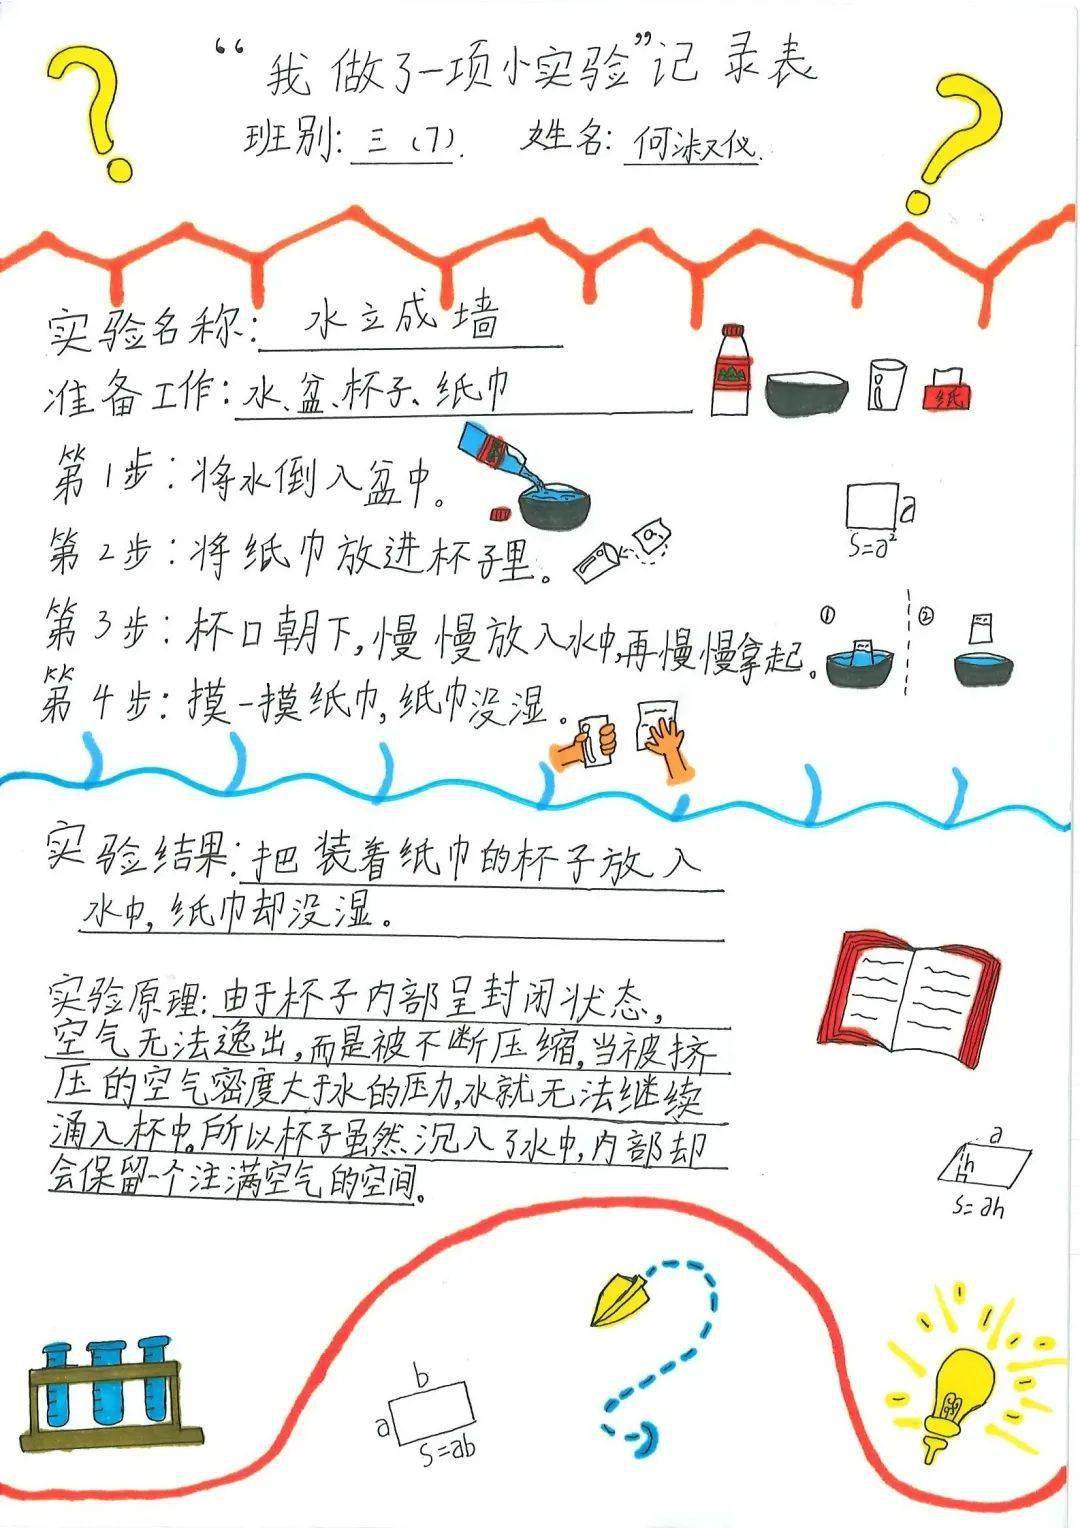 “我做了一项小实验”记录表
班别：三（7）. 姓名：何淑仪.
实验名称：水立成墙
准备工作：水、盆、杯子、纸巾
纸
第1步：将水倒入盆中。
a
S=a²
第2步：将纸巾放进杯子里。
第3步：杯口朝下，慢慢放入水中，再慢慢拿起。
① ②
第4步：摸一摸纸巾，纸巾没湿。
实验结果：把装着纸巾的杯子放入
水中，纸巾却没湿。
实验原理：由于杯子内部呈封闭状态，
空气无法逸出，而是被不断压缩，当被挤
压的空气密度大于水的压力，水就无法继续
涌入杯中。所以杯子虽然沉入了水中，内部却
会保留一个注满空气的空间。
a
h
S=ah
b
a
S=ab